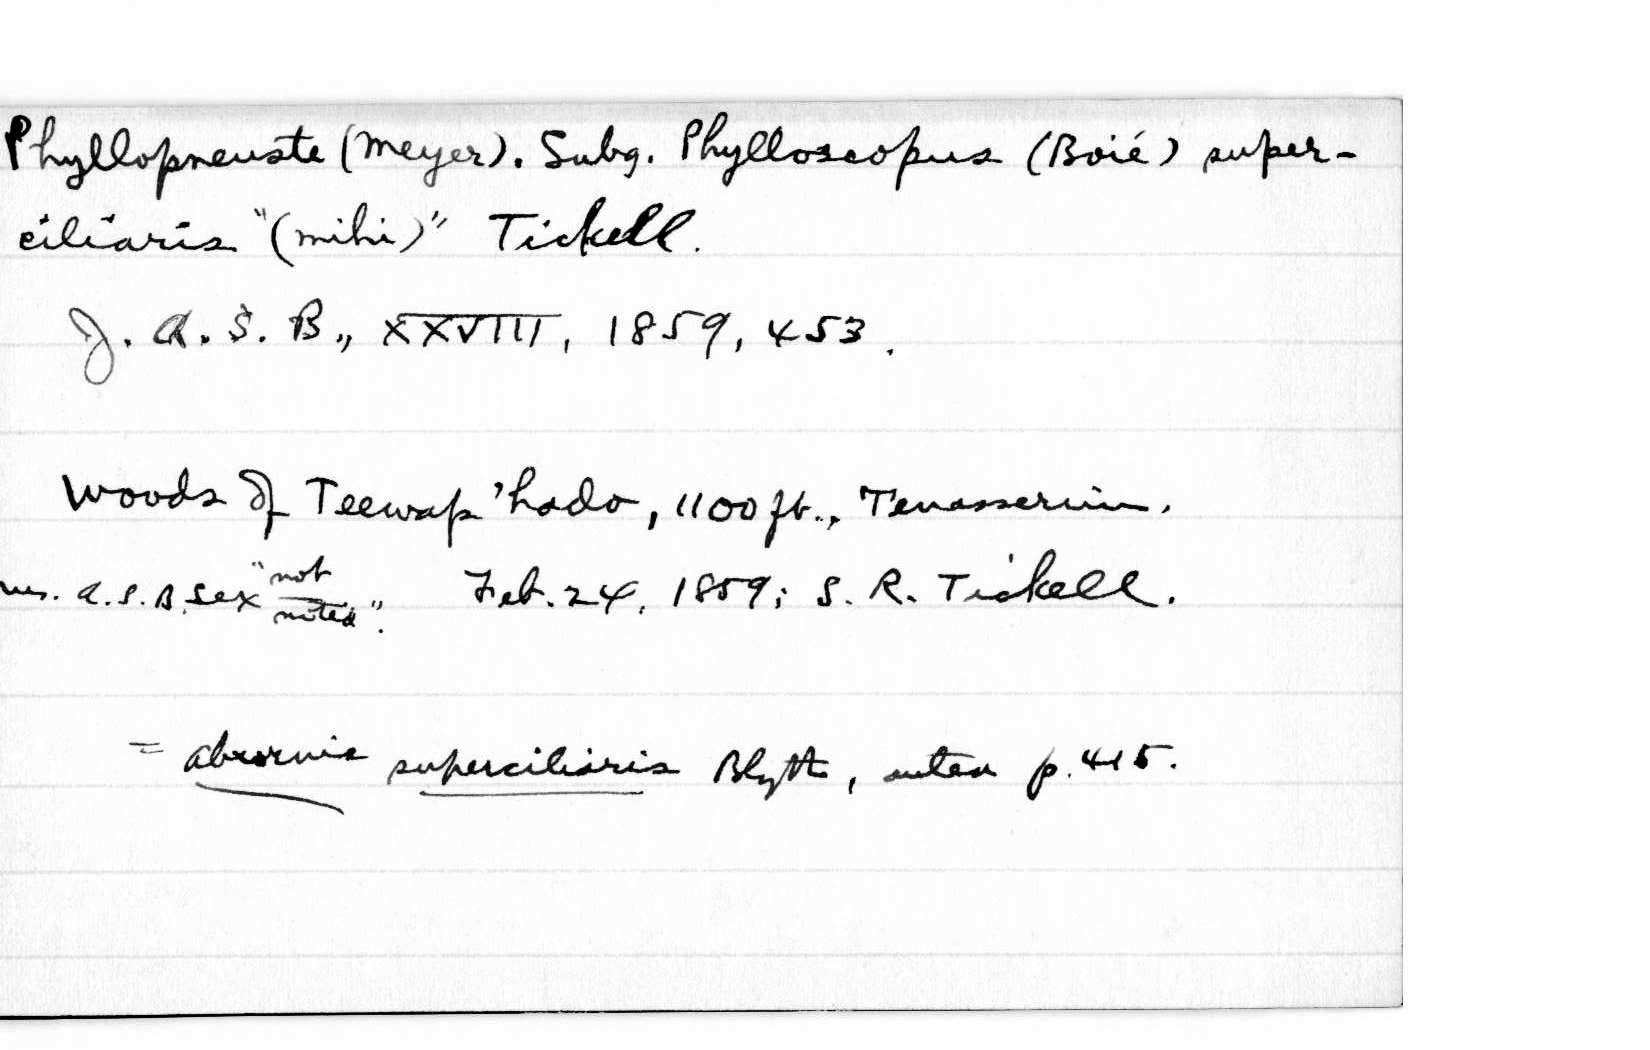 Phyllopneuste (Meyer). Subg. Phylloscopus (Boié) super-
ciliaris "(mihi)" Tickell.
J. A. S. B., XXVIII, 1859, 453.
Woods of Teewap'hado, 1100 ft., Tenasserim.
Mus. A.S.B. Sex "not noted". Feb. 24, 1859; S. R. Tickell.
= Abrornis superciliaris Blyth, antea p. 415.